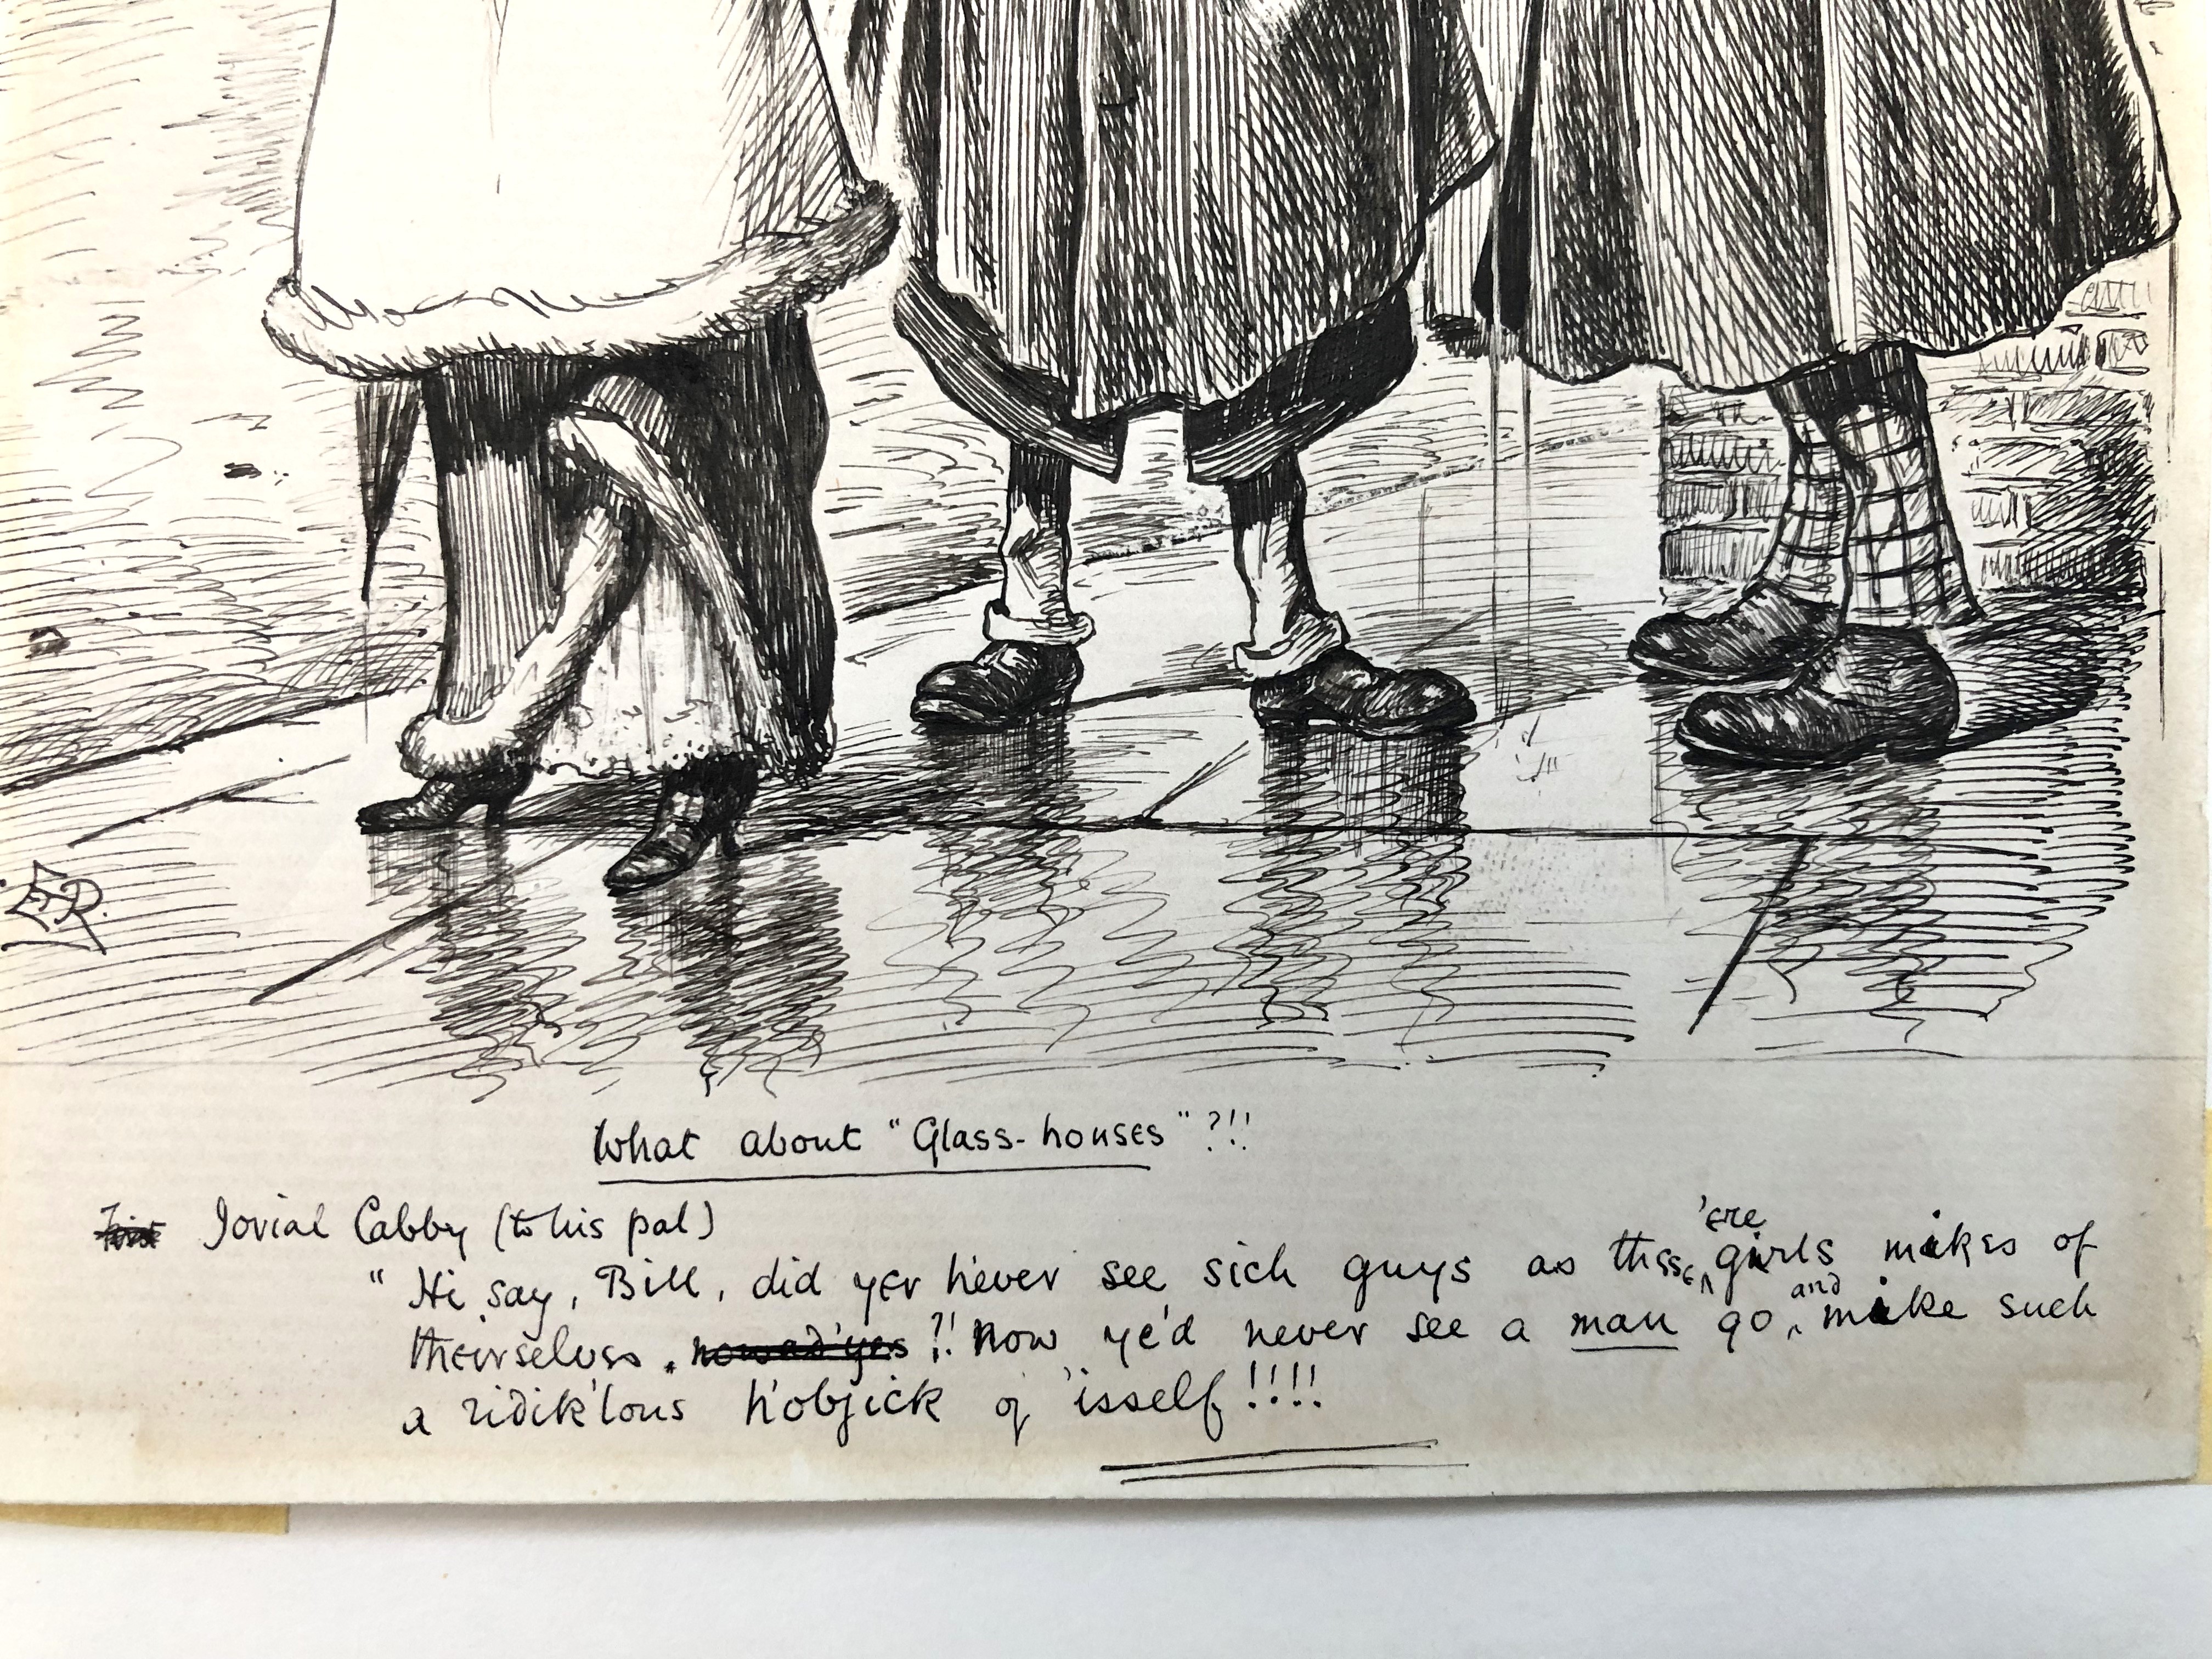 E.R.
What about "Glass-houses"?!!
First Jovial Cabby (to his pal)
"Hi say, Bill, did yer h'ever see sich guys as these 'ere girls mikes of
theirselves. nowad'yes ?! Now ye'd never see a man go and mike such
a ridik'lous h'objick of 'isself!!!!